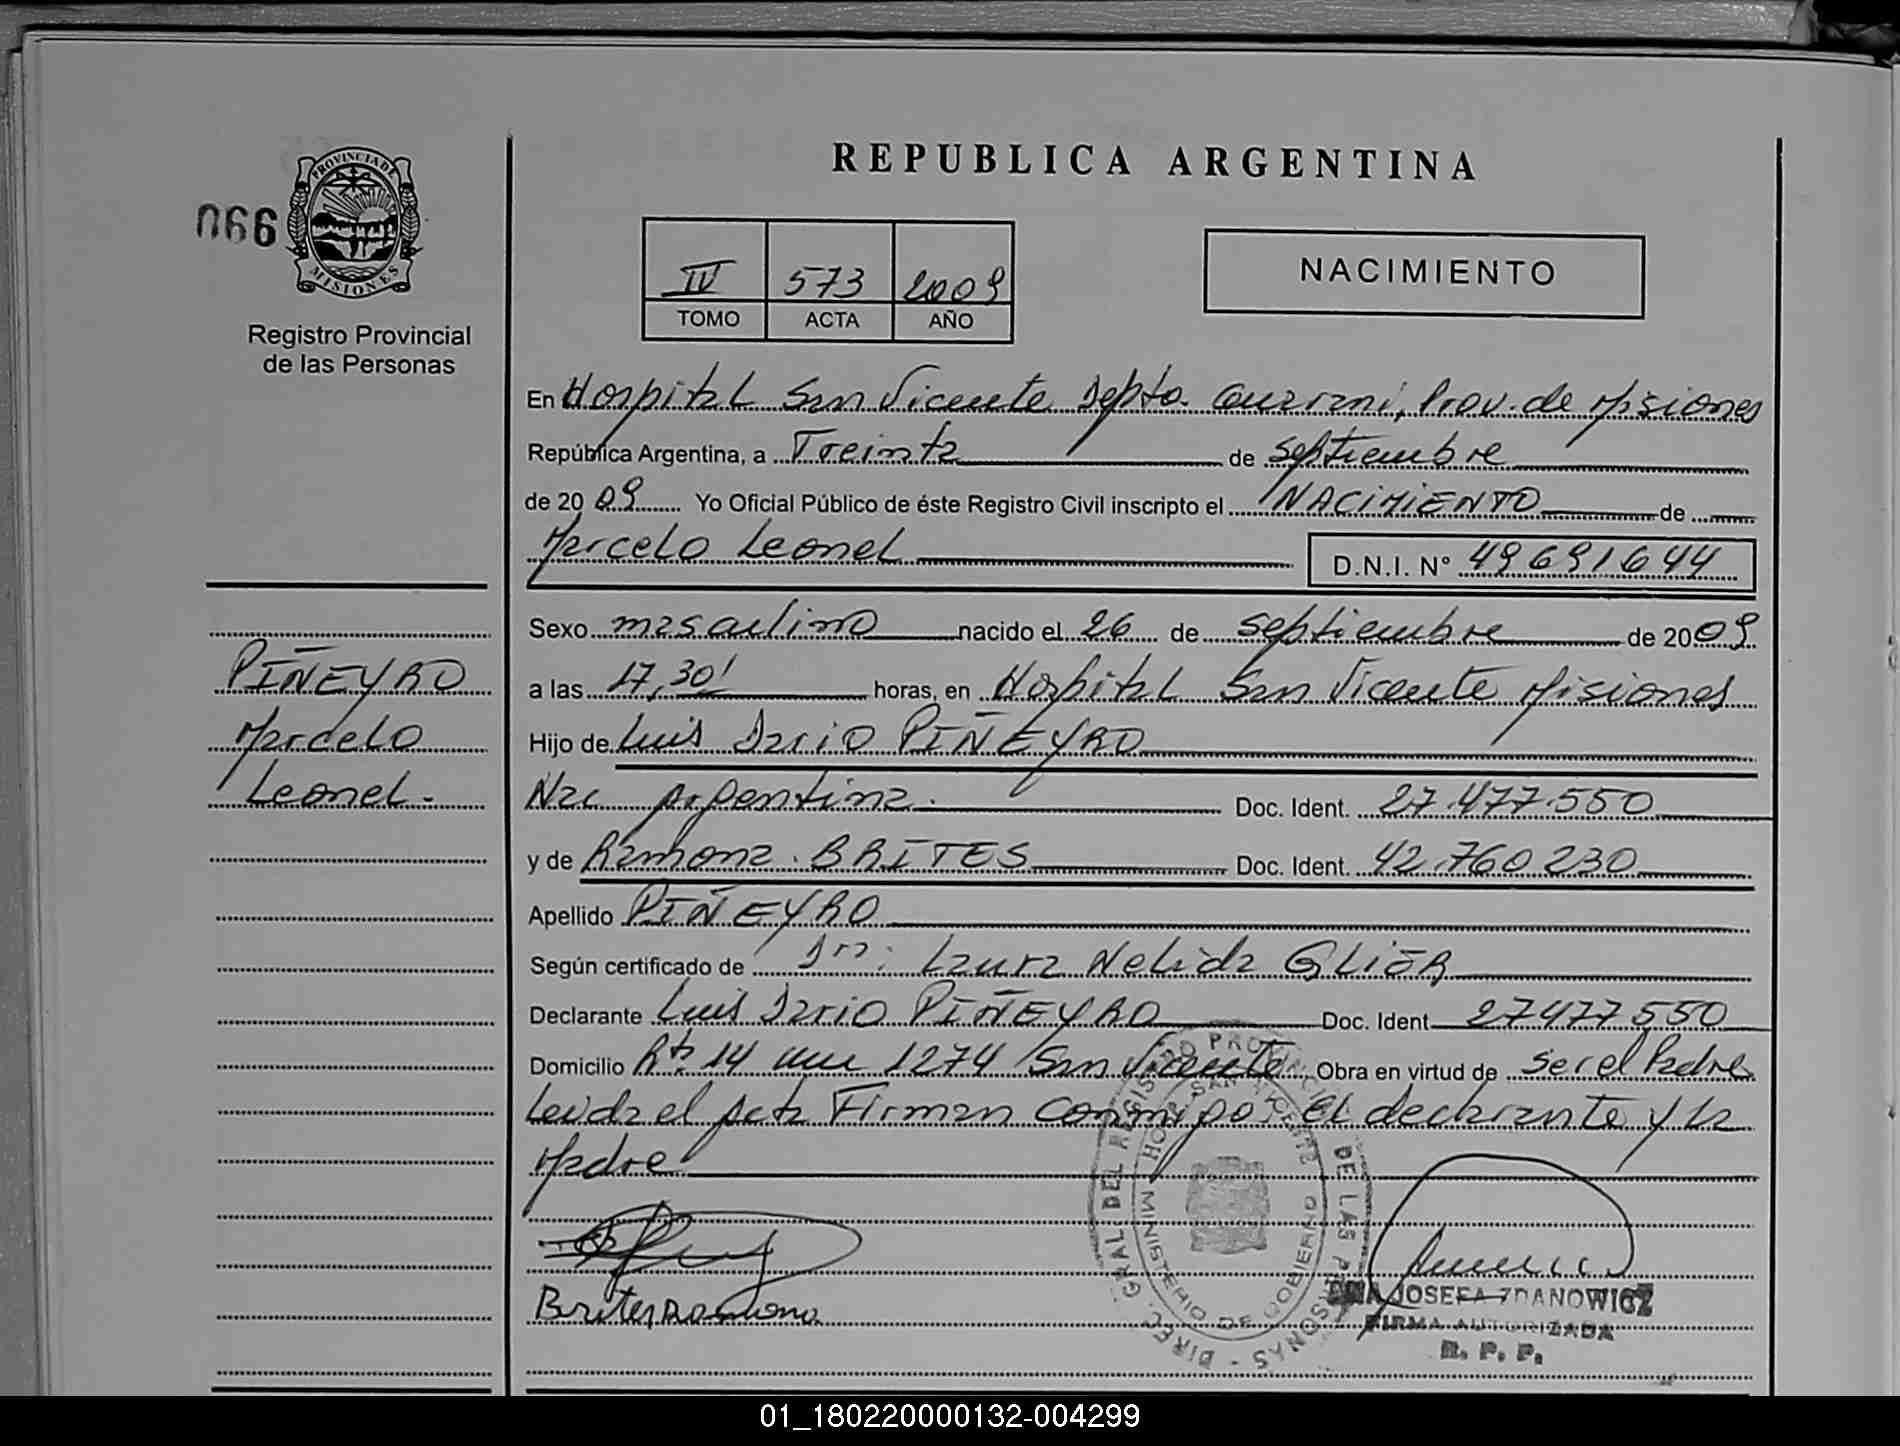 REPUBLICA ARGENTINA
PROVINCIA DE
MISIONES
066
Registro Provincial
de las Personas
IV 573 2009
TOMO ACTA AÑO
NACIMIENTO
En Hospital San Vicente Dpto. Guarani, Prov. de Misiones
República Argentina, a Treinta de Septiembre
de 20 09 Yo Oficial Público de éste Registro Civil inscripto el NACIMIENTO de
Marcelo Leonel D.N.I. N° 49691644
Sexo masculino nacido el 26 de septiembre de 2009
a las 17,30' horas, en Hospital San Vicente Misiones
Hijo de Luis Dario PIÑEYRO
Nac Argentina. Doc. Ident. 27.477.550
y de Ramona BRITES Doc. Ident. 42.760.230
Apellido PIÑEYRO
Según certificado de Dra: Laura Nelida
Declarante Luis Dario PIÑEYRO Doc. Ident 27477550
Domicilio Rta. 14 1274 San Vicente Obra en virtud de ser el Padre
Leida el Acta Firman conmigo. El declarante y la
Madre
Brites Ramona
PIÑEYRO
Marcelo
Leonel.
DIREC. GRAL. DEL REGISTRO PROVINCIAL DE LAS PERSONAS
HOSP. SAN VICENTE
MINISTERIO DE GOBIERNO
JOSEFA ZDANOWICZ
FIRMA AUTORIZADA
R. P. P.
01_180220000132-004299